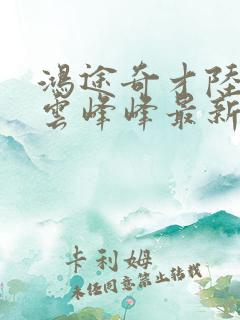 鴻途奇才陸
雲峰峰最新
卡利姆
未經同意禁止轉載